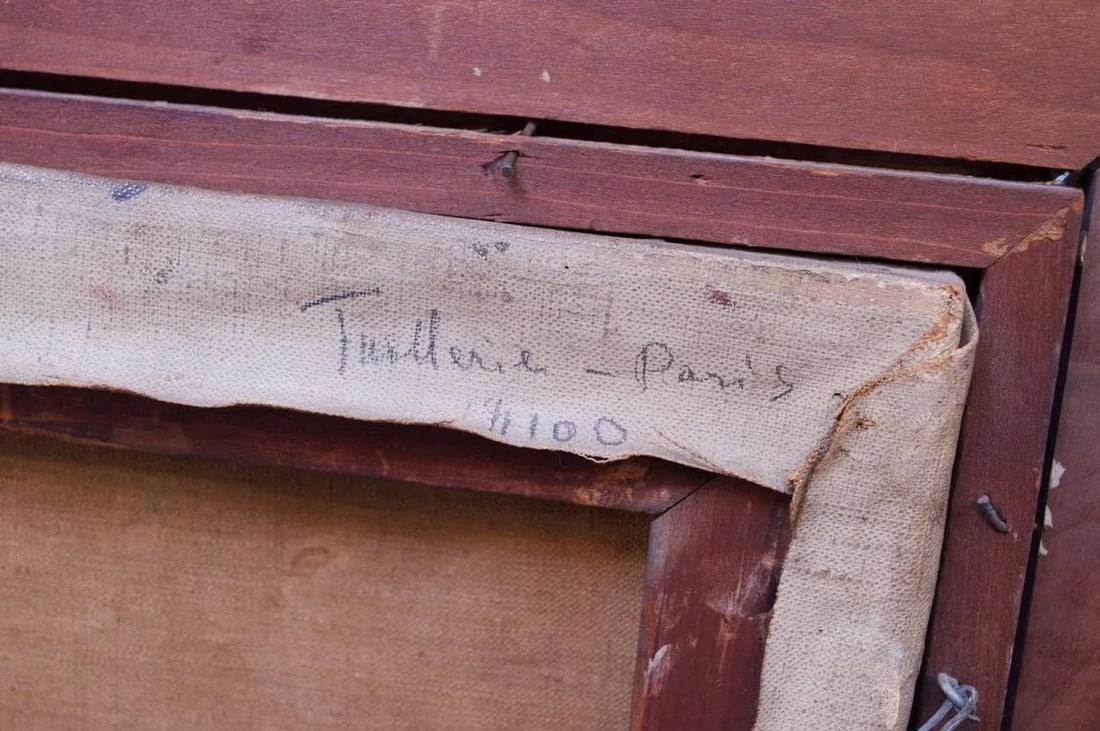 Tuillerie - Paris
$100